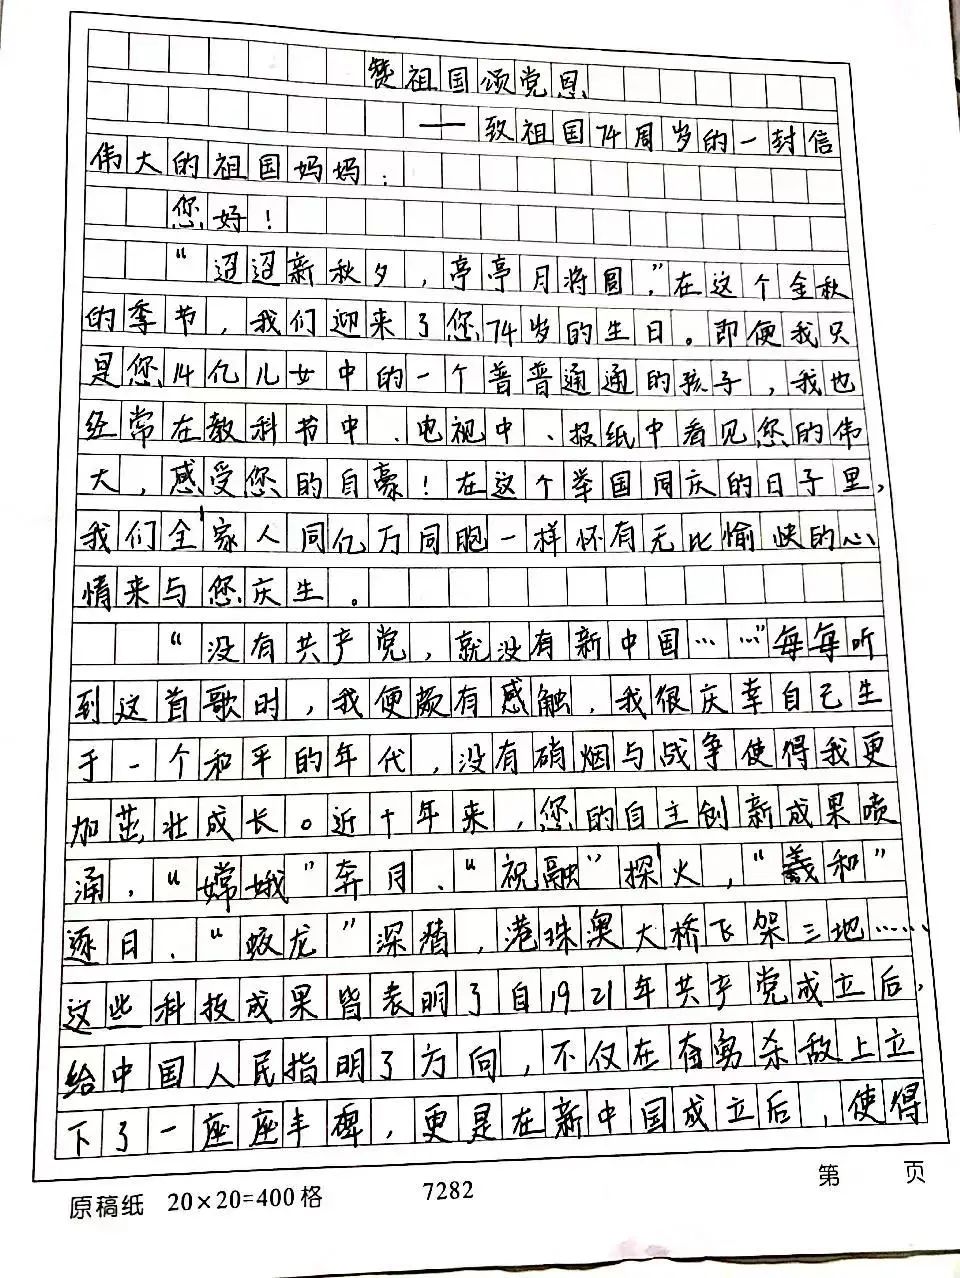 赞祖国颂党恩
——致祖国74周岁的一封信
伟大的祖国妈妈：
您好！
“迢迢新秋夕，亭亭月将圆，”在这个金秋
的季节，我们迎来了您74岁的生日。即便我只
是您14亿儿女中的一个普普通通的孩子，我也
经常在教科书中、电视中、报纸中看见您的伟
大，感受您的自豪！在这个举国同庆的日子里，
我们全家人同亿万同胞一样怀有无比愉快的心
情来与您庆生。
“没有共产党，就没有新中国……”每每听
到这首歌时，我便颇有感触，我很庆幸自己生
于一个和平的年代，没有硝烟与战争使得我更
加茁壮成长。近十年来，您的自主创新成果喷
涌，“嫦娥”奔月、“祝融”探火，“羲和”
逐日、“蛟龙”深精，港珠澳大桥飞架三地……
这些科技成果皆表明了自1921年共产党成立后，
给中国人民指明了方向，不仅在奋勇杀敌上立
下了一座座丰碑，更是在新中国成立后，使得
原稿纸 20×20=400格 7282 第 页